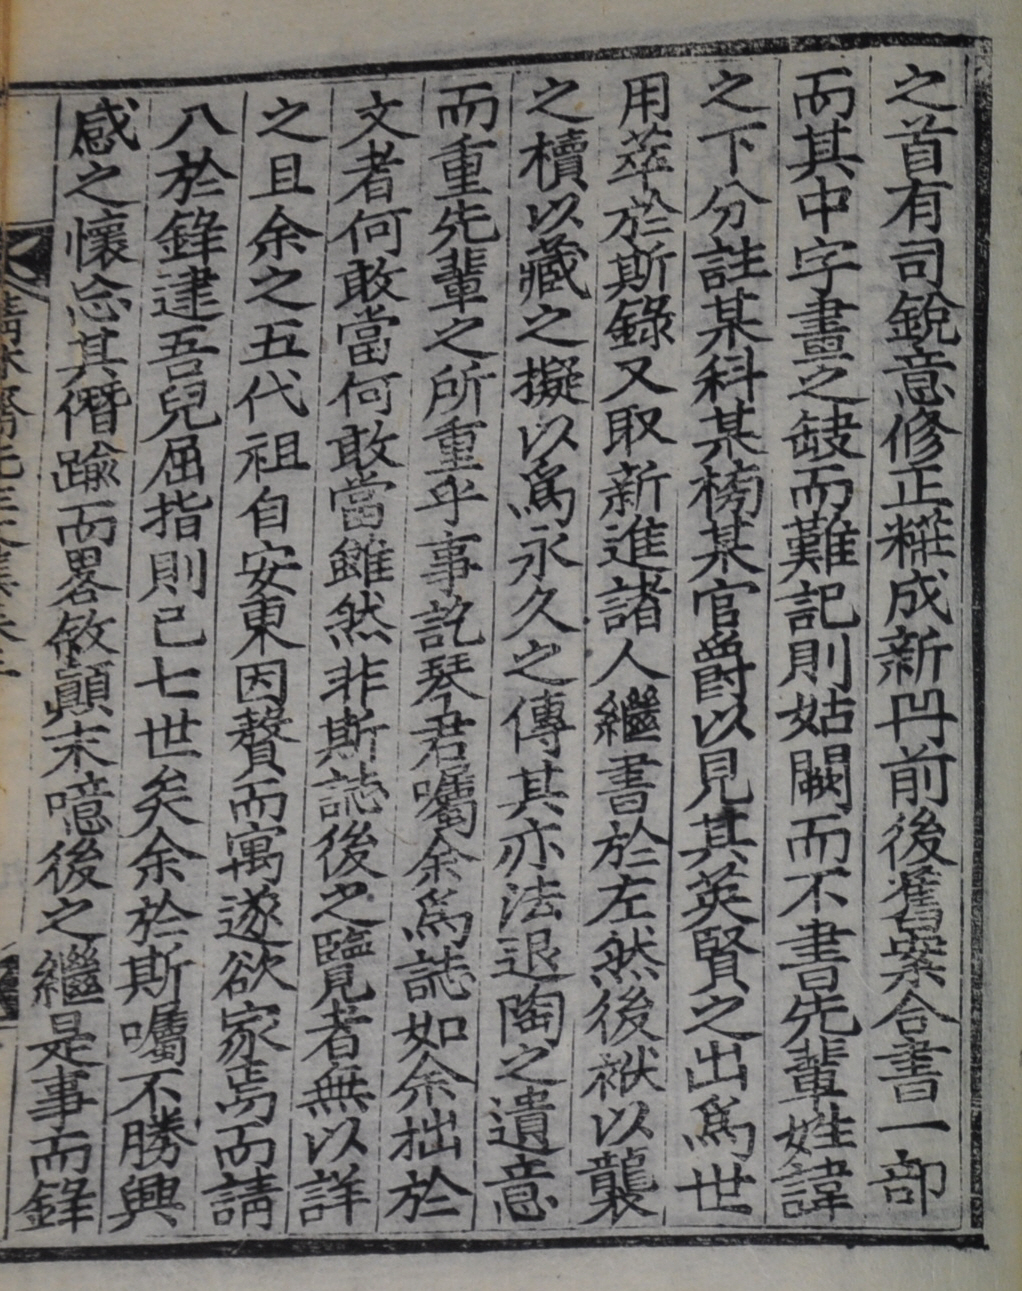 之首有司銳意修正粧成新冊前後舊案合書一部
而其中字畫之缺而難記則姑闕而不書先輩姓諱
之下分註某科某榜某官爵以見其英賢之出爲世
用萃於斯錄又取新進諸人繼書於左然後袱以襲
之櫝以藏之擬以爲永久之傳其亦法退陶之遺意
而重先輩之所重乎事訖琴君囑余爲誌如余拙於
文者何敢當何敢當雖然非斯誌後之覽者無以詳
之且余之五代祖自安東因贅而寓遂欲家焉而請
入於錄逮吾兒屈指則已七世矣余於斯囑不勝興
感之懷忘其僭踰而畧敘顚末噫後之繼是事而錄